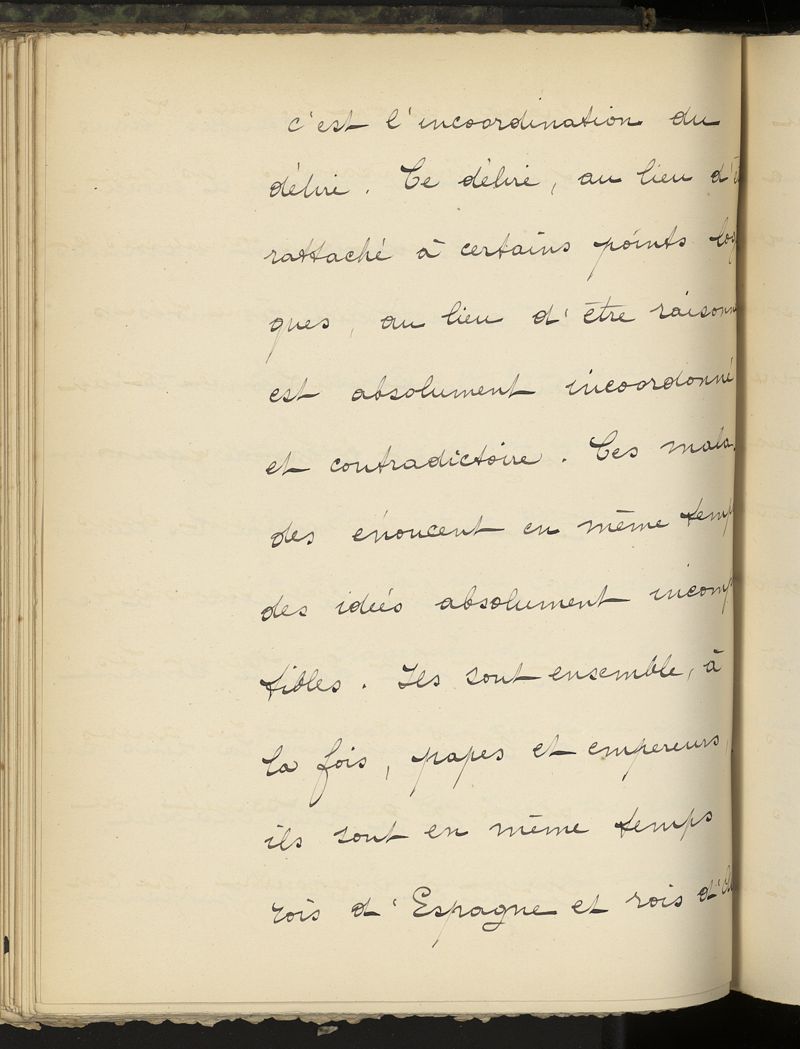 c'est l'incoordination du
délire. Ce délire, au lieu
rattaché à certains points
ques, au lieu d'être
est absolument incoordonné
et contradictoire. Ces mala-
des énoncent en même
des idées absolument
tibles. Ils sont ensemble, à
la fois, papes et empereurs,
ils sont en même temps
rois d'Espagne et rois